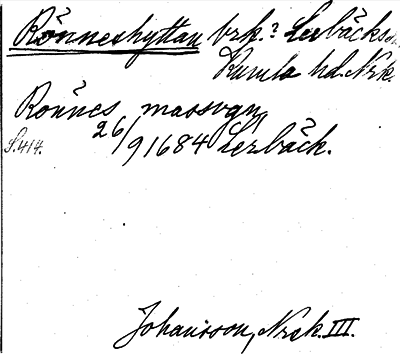 Rönneshyttan brk.? Lerbäcks sn.
Kumla hd. Nrk.
Rönnes massvgn
26/9 1684 Lerbäck.
S. 414.
Johansson, Nrsk. III.